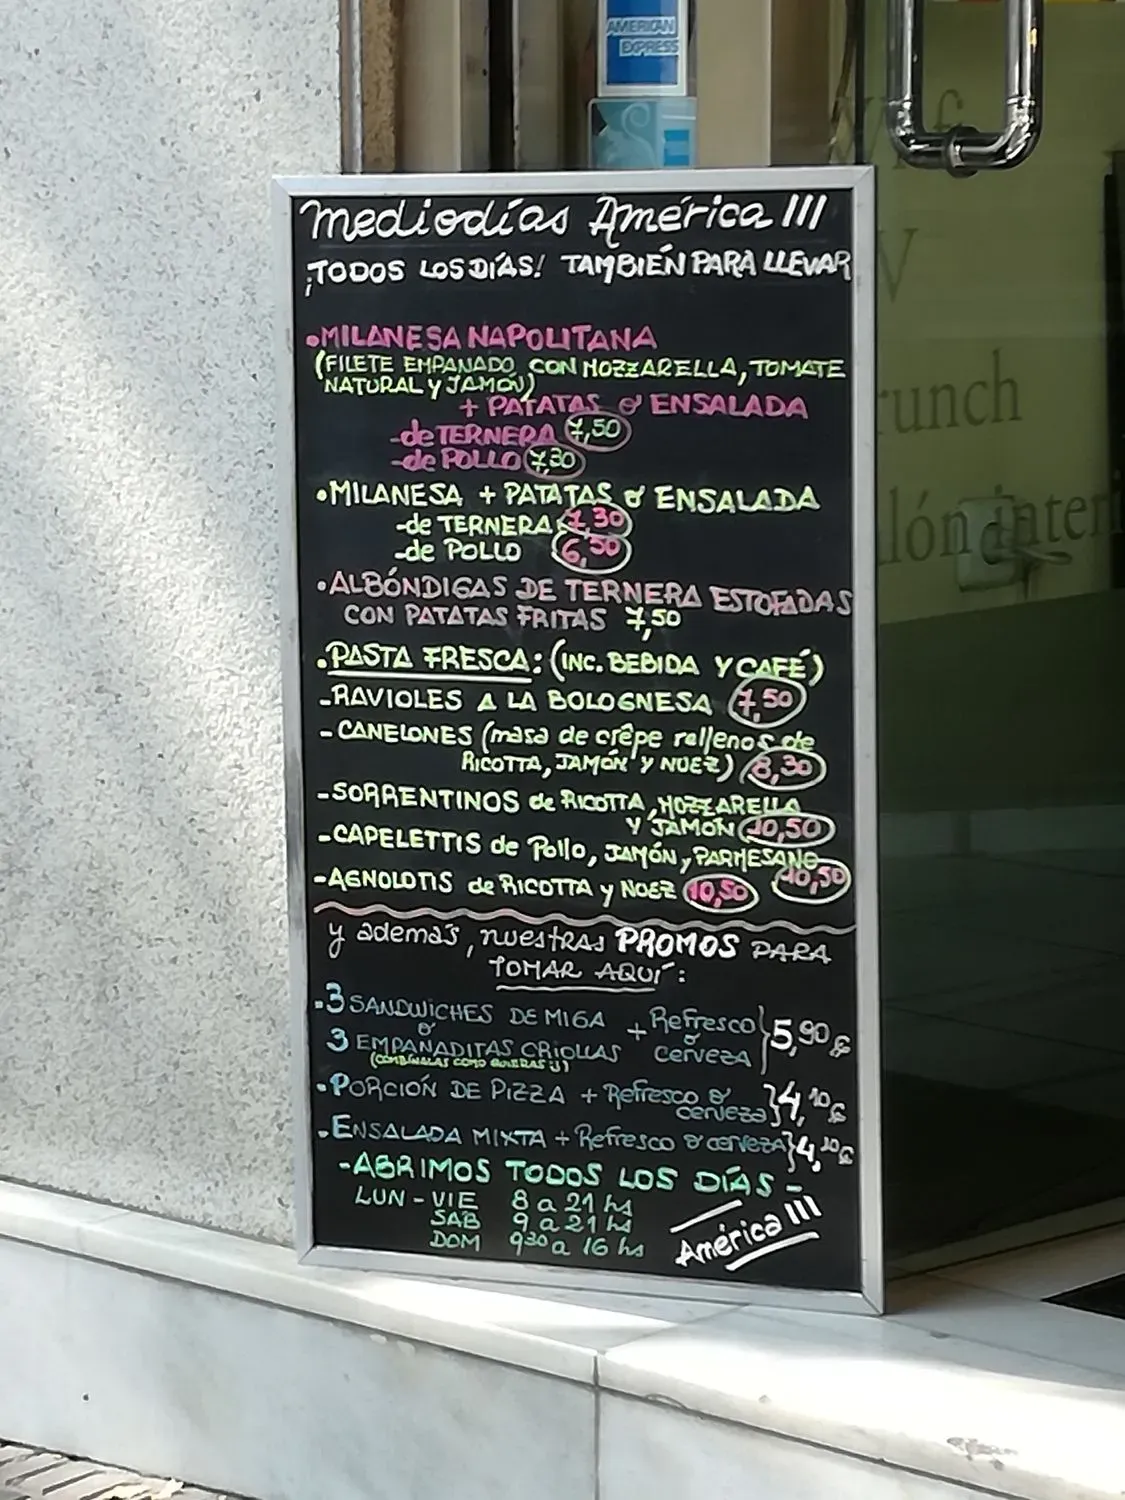 AMERICAN
EXPRESS
mediodías América III
¡TODOS LOS DÍAS! TAMBIÉN PARA LLEVAR
•MILANESA NAPOLITANA
(FILETE EMPANADO CON MOZZARELLA, TOMATE
NATURAL y JAMÓN)
+ PATATAS ó ENSALADA
-de TERNERA 7,50
-de POLLO 7,30
•MILANESA + PATATAS ó ENSALADA
-de TERNERA 7,30
-de POLLO 6,50
•ALBÓNDIGAS DE TERNERA ESTOFADAS
CON PATATAS FRITAS 7,50
•PASTA FRESCA: (INC. BEBIDA Y CAFÉ)
-RAVIOLES A LA BOLOGNESA 7,50
-CANELONES (masa de crêpe rellenos de
RICOTTA, JAMÓN Y NUEZ) 8,30
-SORRENTINOS de RICOTTA, MOZZARELLA
Y JAMÓN 10,50
-CAPELETTIS de Pollo, JAMÓN, PARMESANO
10,50
-AGNOLOTIS de RICOTTA y NUEZ 10,50
y además, nuestras PROMOS PARA
TOMAR AQUÍ:
•3 SANDWICHES DE MIGA + Refresco
ó ó 5,90 €
3 EMPANADITAS CRIOLLAS cerveza
(COMBÍNALAS COMO QUIERAS :))
•PORCIÓN DE PIZZA + Refresco ó
cerveza 4,10 €
•ENSALADA MIXTA + Refresco ó cerveza 4,10 €
-ABRIMOS TODOS LOS DÍAS-
LUN - VIE 8 a 21 hs
SAB 9 a 21 hs
DOM 9³⁰ a 16 hs
América III
runch
lón interi